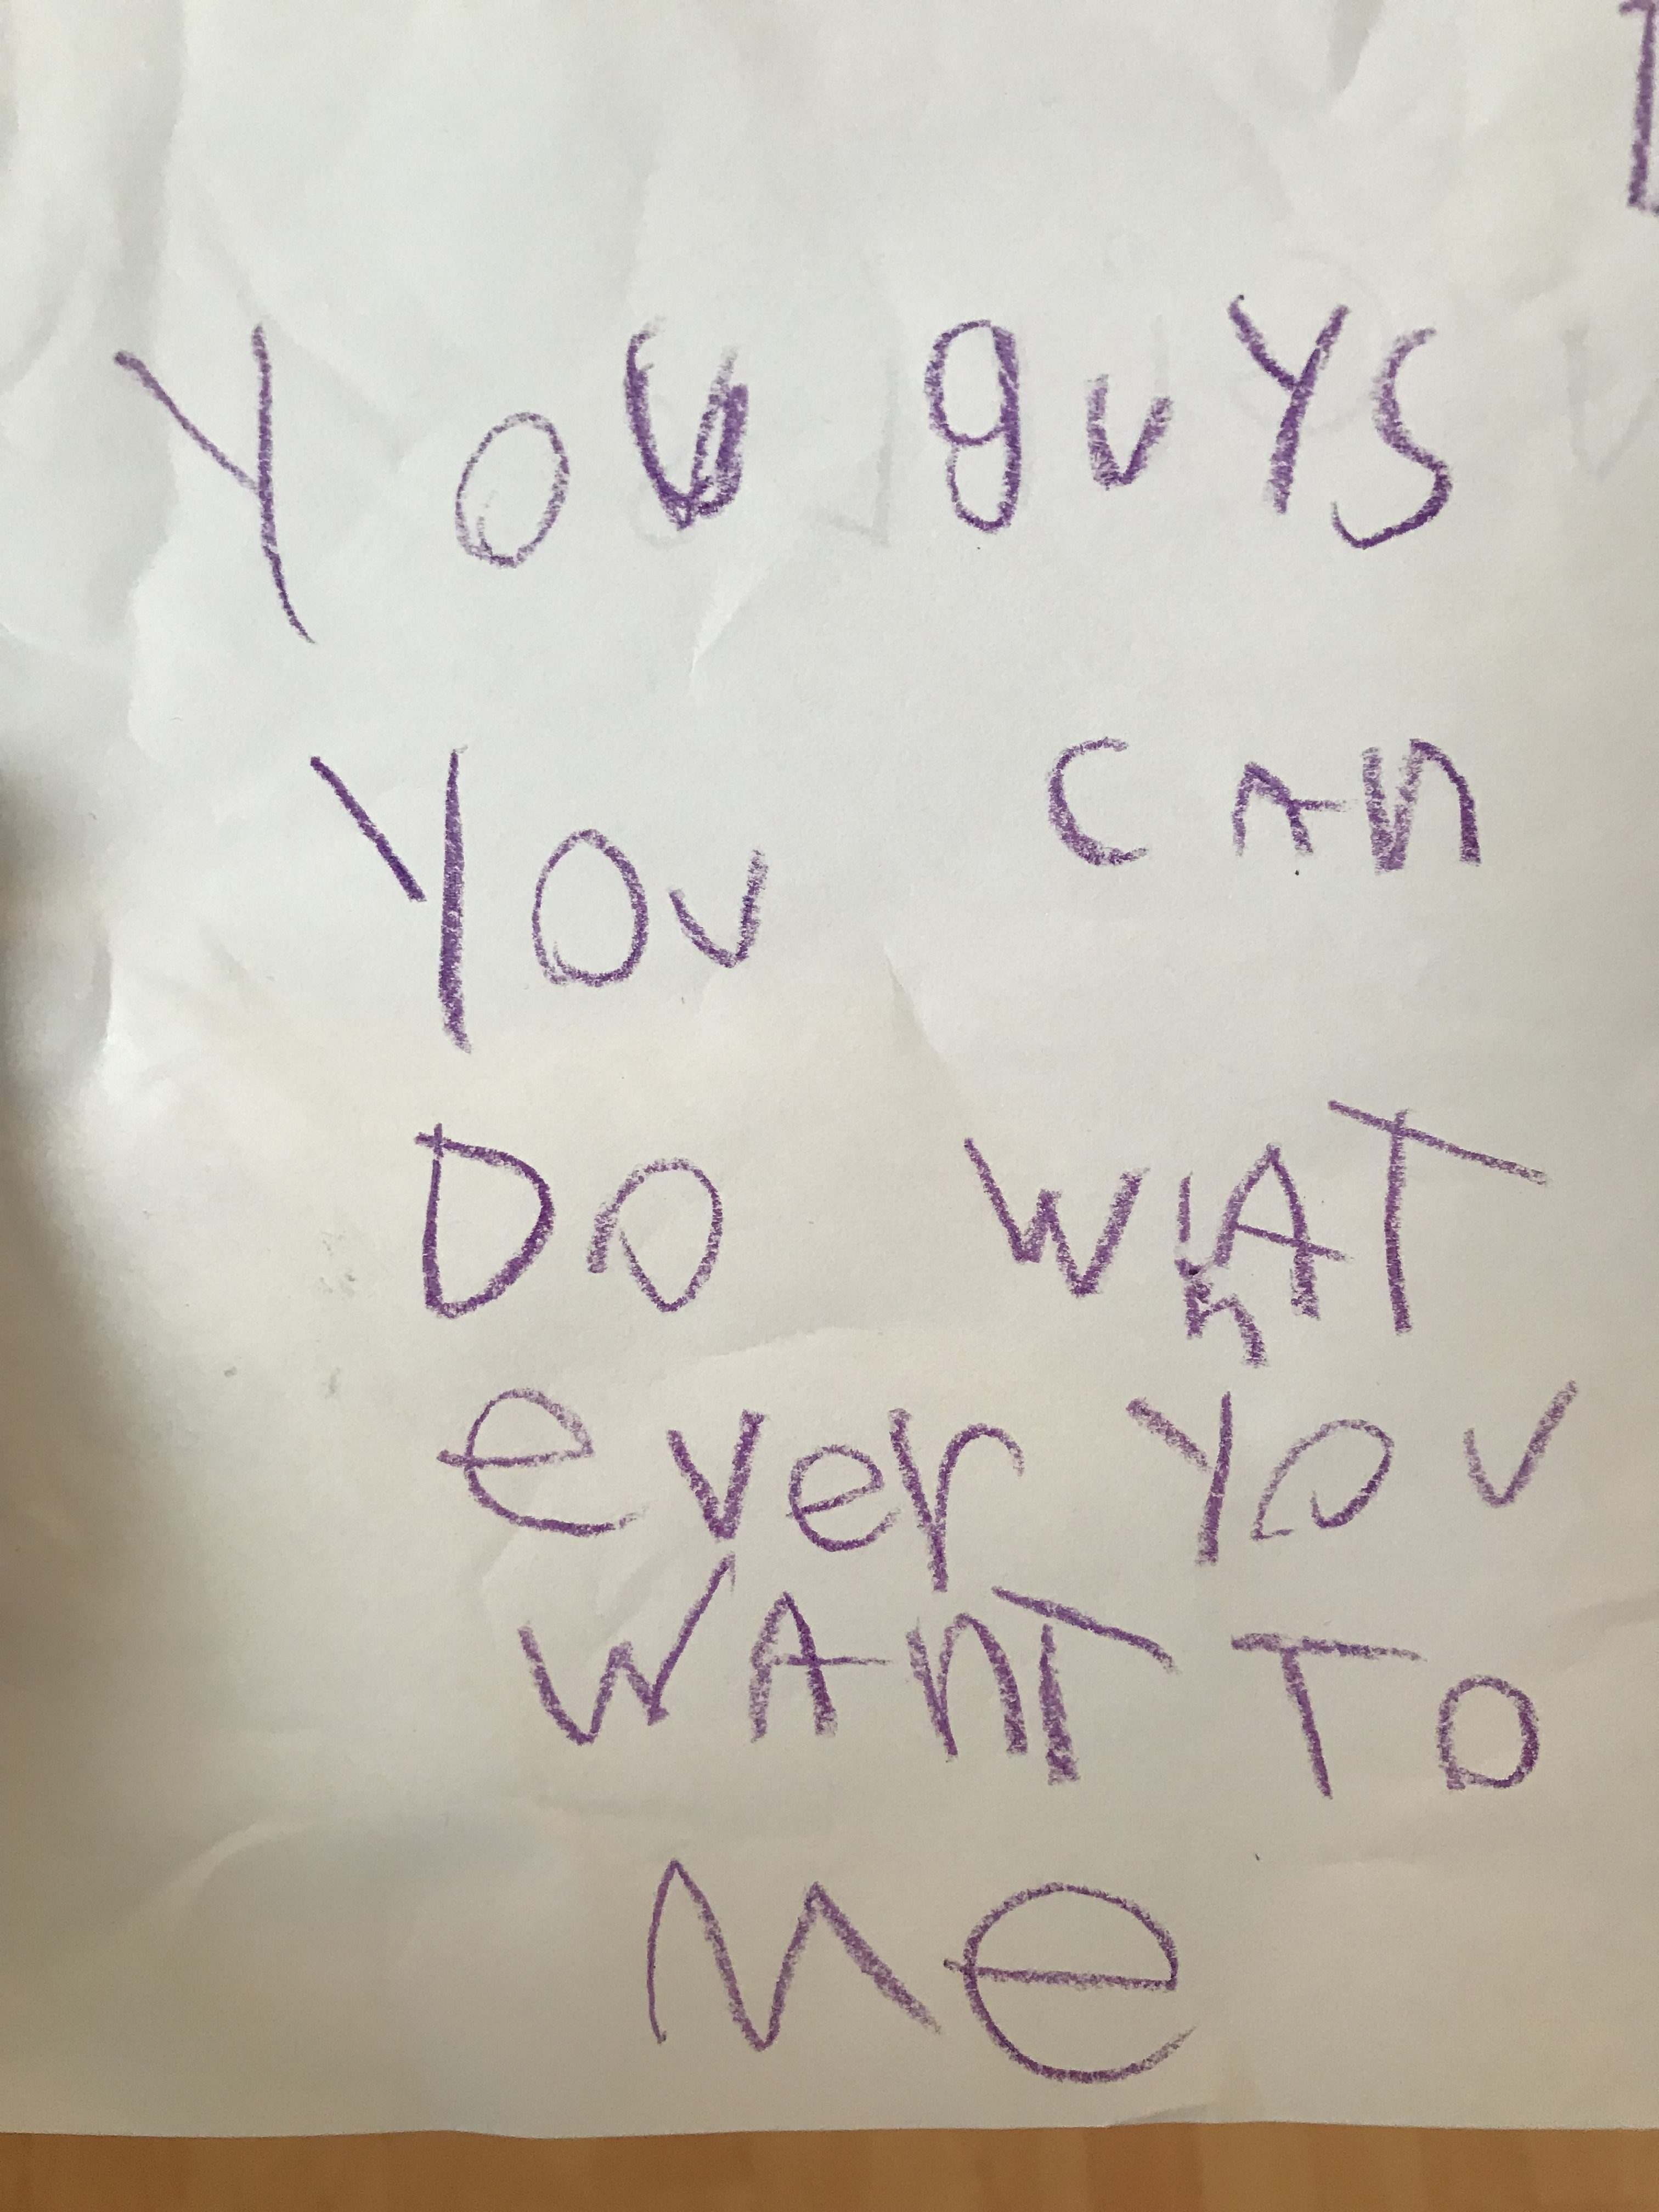 YOU guYS
YOU CAn
DO WhAT
ever YOU
WAnT TO
Me